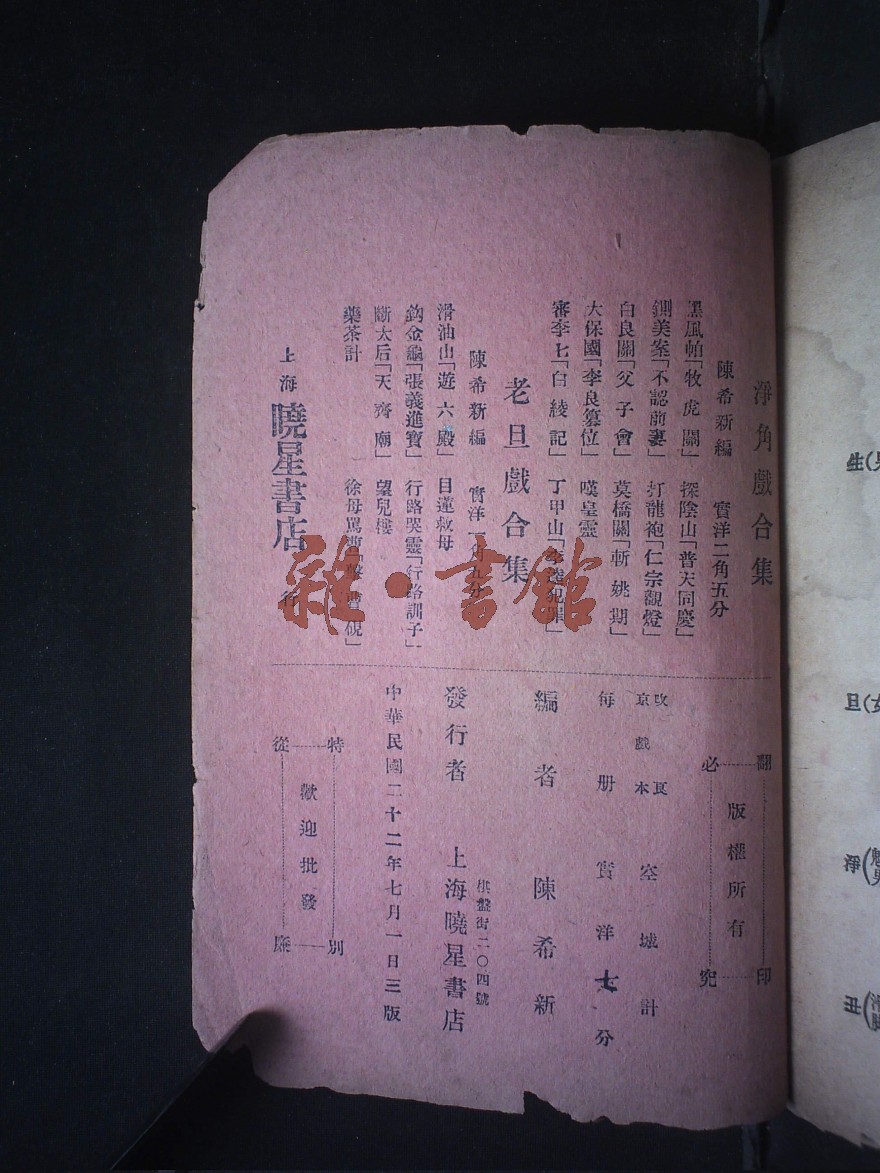 淨角戲合集
陳希新編 實洋二角五分
黑風帕「牧虎關」 探陰山「普天同慶」
鍘美案「不認前妻」 打龍袍「仁宗觀燈」
白良關「父子會」 草橋關「斬姚期」
大保國「李良篡位」 嘆皇靈
審李七「白綾記」 丁甲山「李逵犯罪」
老旦戲合集
陳希新編 實洋一角五分
滑油山「遊六殿」 目蓮救母
釣金龜「張義進寶」 行路哭靈「行路訓子」
斷太后「天齊廟」 望兒樓
藥茶計 徐母罵曹「擊曹硯」
上海 曉星書店 行
翻印必究
版權所有
改良京戲本 空城計
每册實洋 分
編者 陳希新
發行者 上海曉星書店
棋盤街二〇四號
中華民國二十二年七月一日三版
特別從廉
歡迎批發
雜·書館
生
旦
淨